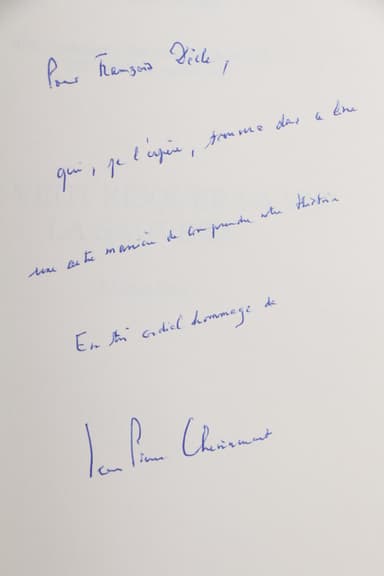 Pour François Dèle,
qui, je l'espère, trouvera dans ce livre
une autre manière de comprendre notre Histoire
En très cordial hommage de
Jean Pierre Chevènement